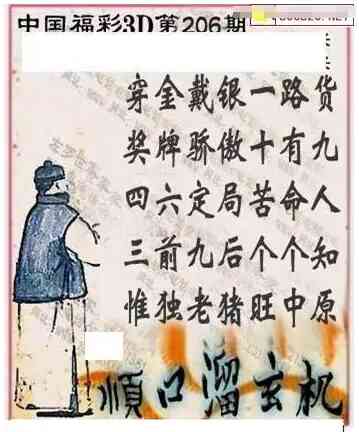 中国福彩3D第206期
穿金戴银一路货
奖牌骄傲十有九
四六定局苦命人
三前九后个个知
惟独老猪旺中原
顺口溜玄机